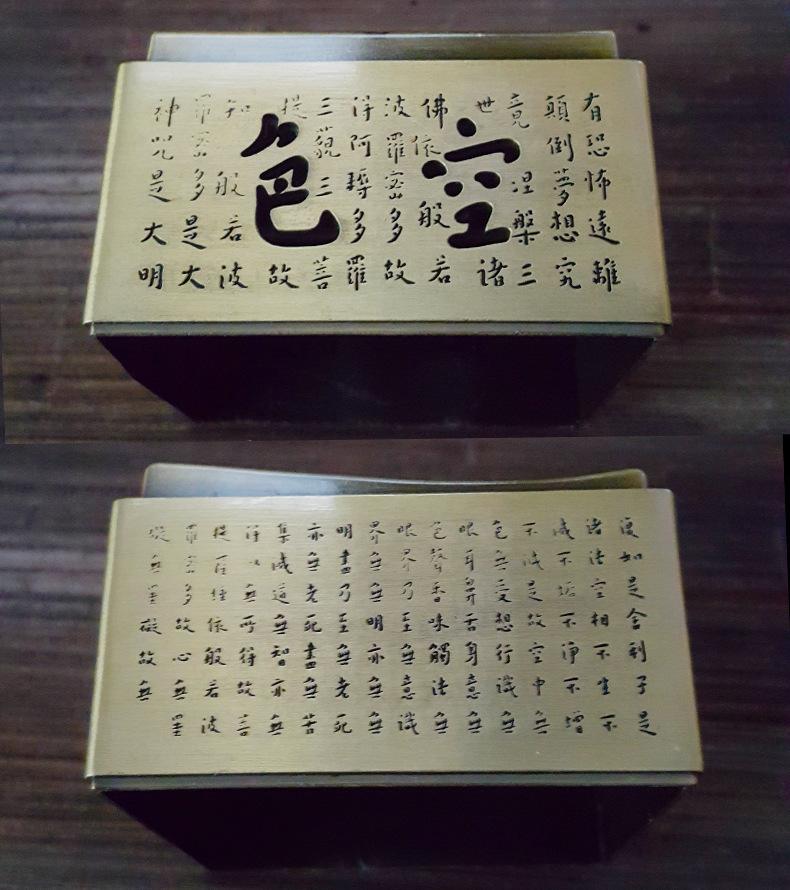 色空
有恐怖遠離
顛倒夢想究
竟涅槃三
世諸
佛依般若
波羅蜜多故
得阿耨多羅
三藐三菩
提故
知般若波
羅蜜多是大
神咒是大明
復如是舍利子是
諸法空相不生不
滅不垢不淨不增
不減是故空中無
色無受想行識無
眼耳鼻舌身意無
色聲香味觸法無
眼界乃至無意識
界無無明亦無無
明盡乃至無老死
亦無老死盡無苦
集滅道無智亦無
得以無所得故菩
提薩埵依般若波
羅蜜多故心無罣
礙無罣礙故無